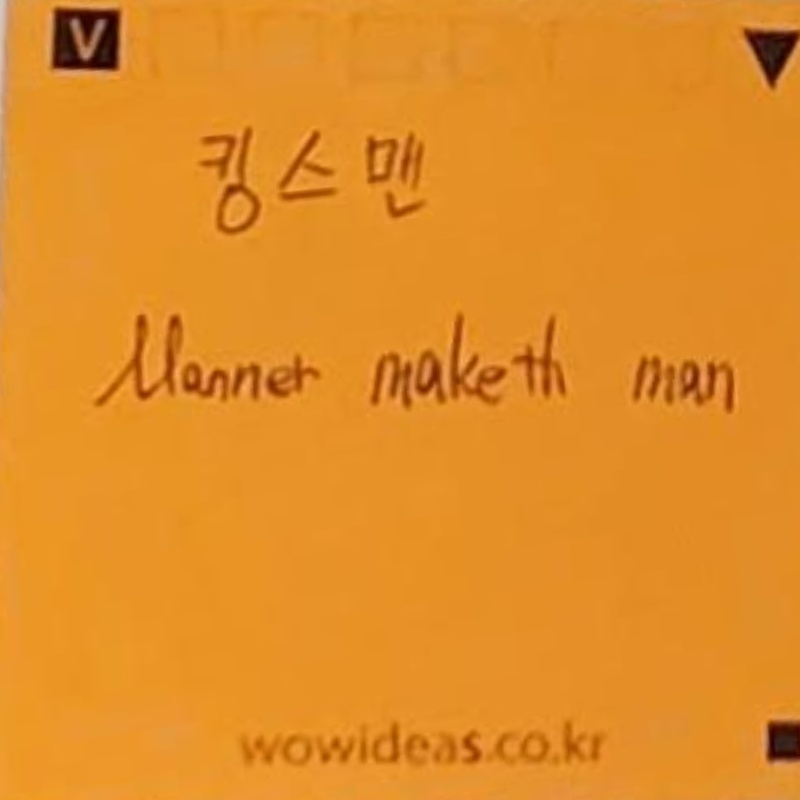 V
킹스맨
Manner maketh man
wowideas.co.kr